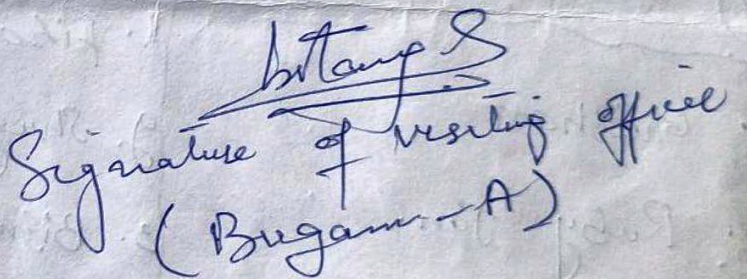 Signature of visiting officer
(Bugam-A)